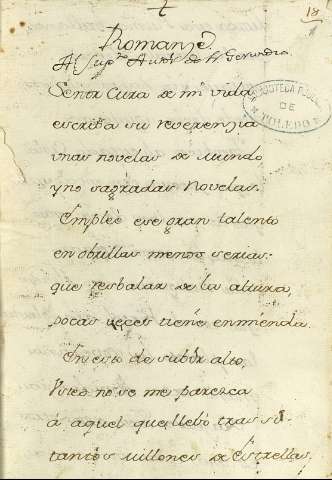 18
Romanze
Al Sup.to Autor de Fr. Gerundio.
Señor Cura de mi vida
escriba su reverenzia
unas novelas de mundo
y no sagradas Novelas.
Empleè ese gran talento
en obrillas menos serias:
que resbalar de la altura,
pocas veces tiene enmienda.
En esto de subir alto,
Usted no se me parezca
á aquel que llebó tras si
tantos millones de estrellas.
BIBLIOTECA
DE
TOLEDO